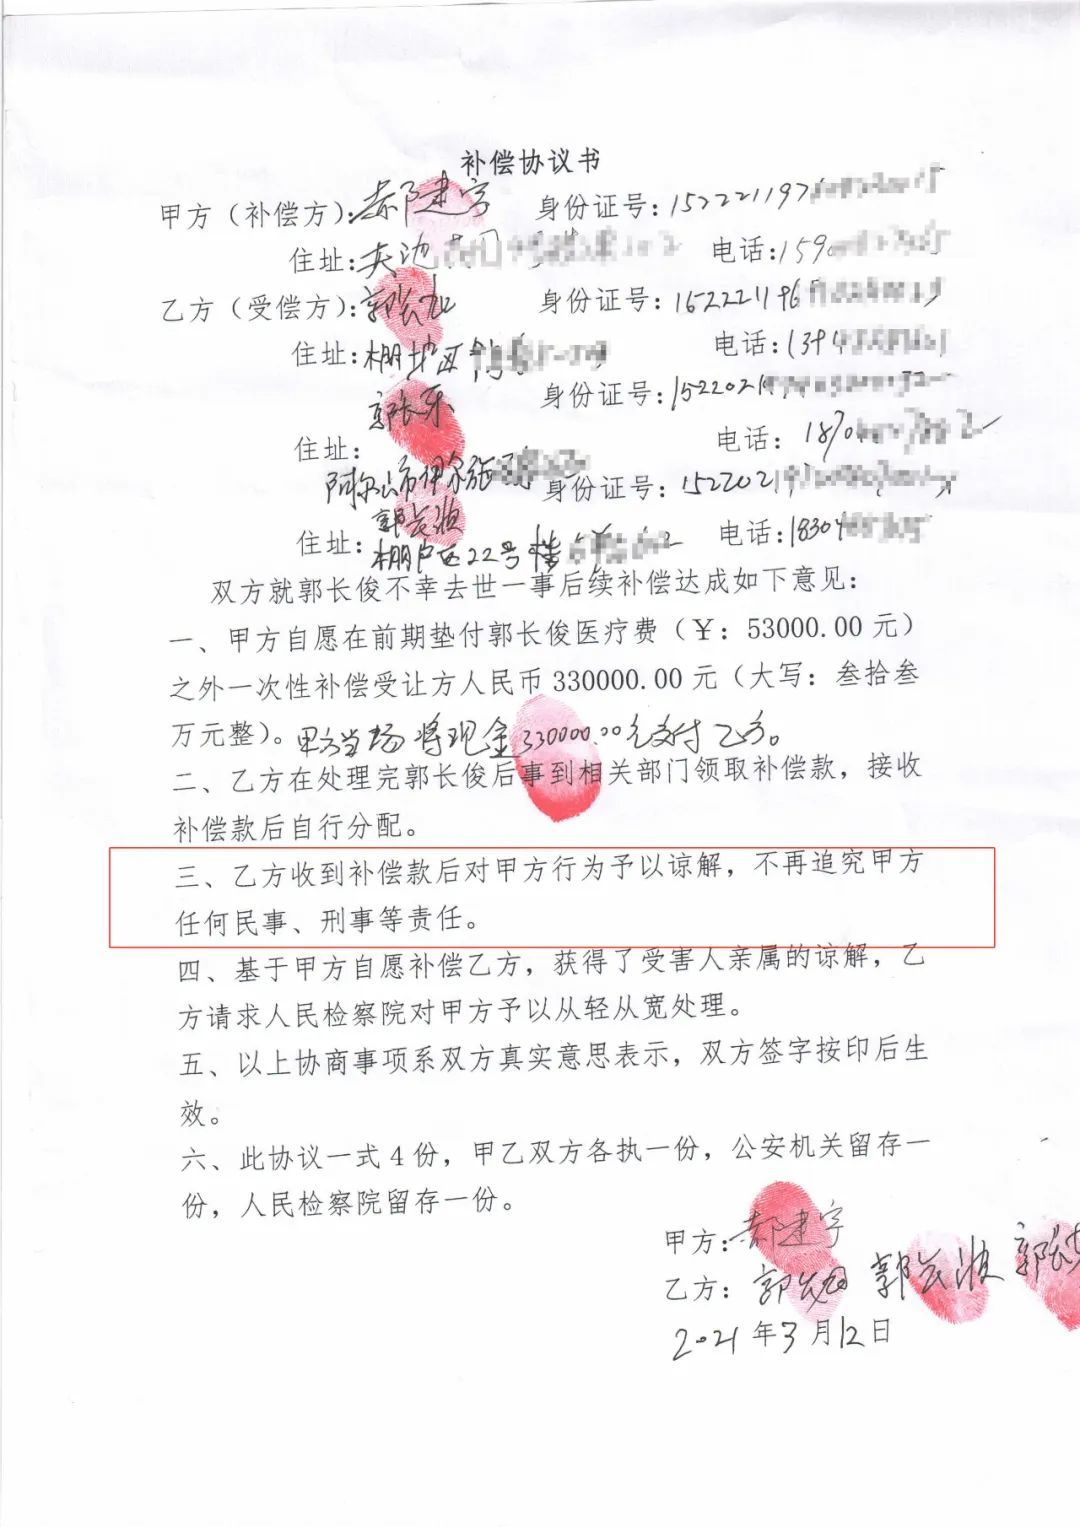 补偿协议书
甲方（补偿方）：郝建宇 身份证号：152221197
住址： 电话：1590
乙方（受偿方）：郭长 身份证号：152221196
住址：棚户区 电话：1394
郭长东 身份证号：1522021
住址： 电话：1870
阿尔山市伊尔施 身份证号：1522021
郭长波
住址：棚户区22号楼 电话：18304
双方就郭长俊不幸去世一事后续补偿达成如下意见：
一、甲方自愿在前期垫付郭长俊医疗费（￥：53000.00元）
之外一次性补偿受让方人民币330000.00元（大写：叁拾叁
万元整）。甲方当场将现金330000.00元支付乙方。
二、乙方在处理完郭长俊后事到相关部门领取补偿款，接收
补偿款后自行分配。
三、乙方收到补偿款后对甲方行为予以谅解，不再追究甲方
任何民事、刑事等责任。
四、基于甲方自愿补偿乙方，获得了受害人亲属的谅解，乙
方请求人民检察院对甲方予以从轻从宽处理。
五、以上协商事项系双方真实意思表示，双方签字按印后生
效。
六、此协议一式4份，甲乙双方各执一份，公安机关留存一
份，人民检察院留存一份。
甲方：郝建宇
乙方：郭长 郭长波 郭长
2021年3月12日